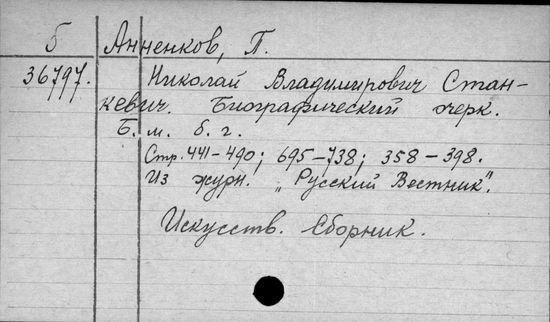 Б Анненков, П.
36797. Николай Владимирович Стан-
кевич. Биографический очерк.
Б. м. б. г.
Стр. 441-490; 695-738; 358-398.
Из журн. „Русский Вестник".
Искусств. Сборник.